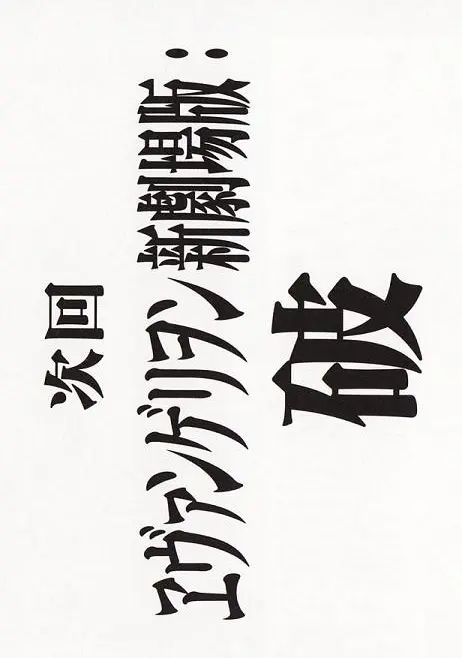 次回
ヱヴァンゲリヲン新劇場版：
破